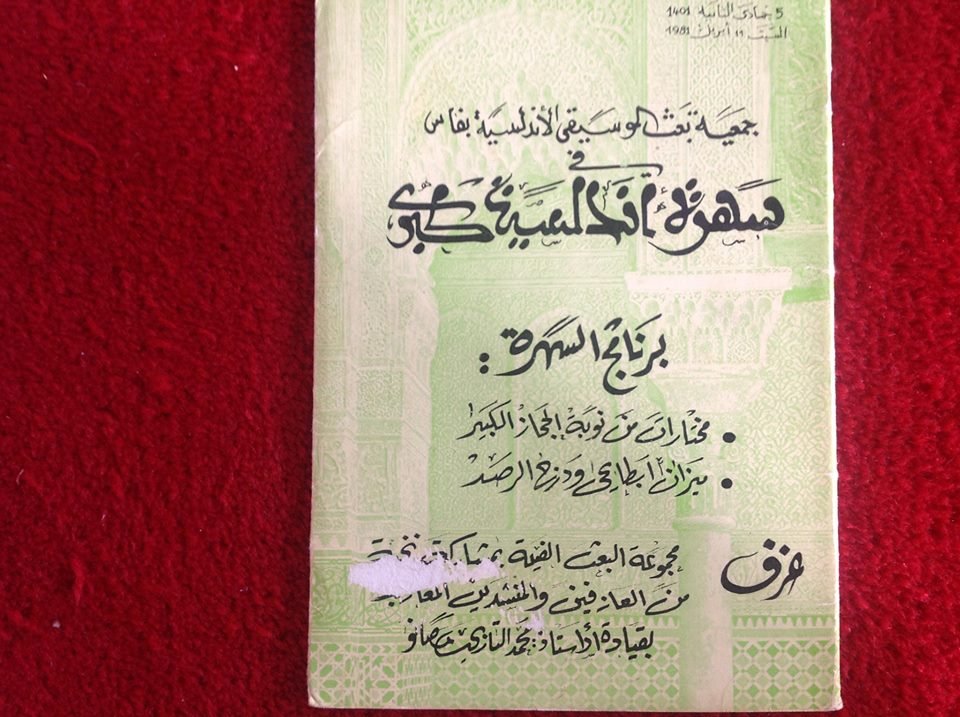 5 جمادى الثانية 1401
السبت 11 أبريل 1981
جمعية بعث الموسيقى الأندلسية بفاس
في
سهرة أندلسية كبرى
برنامج السهرة :
• مختارات من نوبة الحجاز الكبير
• ميزان ابطايحي ودرج الرصد
عزف
مجموعة البعث الفنية بمشاركة نخبة
من العازفين والمنشدين المغاربة
بقيادة الأستاذ : محمد التازي